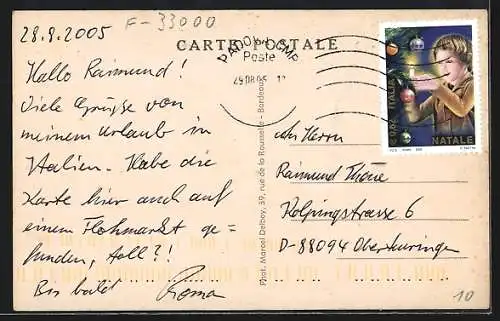 28.8.2005
F-33000
CARTE POSTALE
PADOVA CMP
Poste
29.08.05
€ 0,62 ITALIA
NATALE
Hallo Raimund!
Viele Grüße von
meinem Urlaub in
Italien. Habe die
Karte hier auch auf
einem Flohmarkt ge-
funden, toll?!
Bis bald
Roma
Phot. Marcel Delboy, 39, rue de la Rousselle - Bordeaux
An Herrn
Raimund
Kolpingstrasse 6
D-88094 Oberteuringen
10